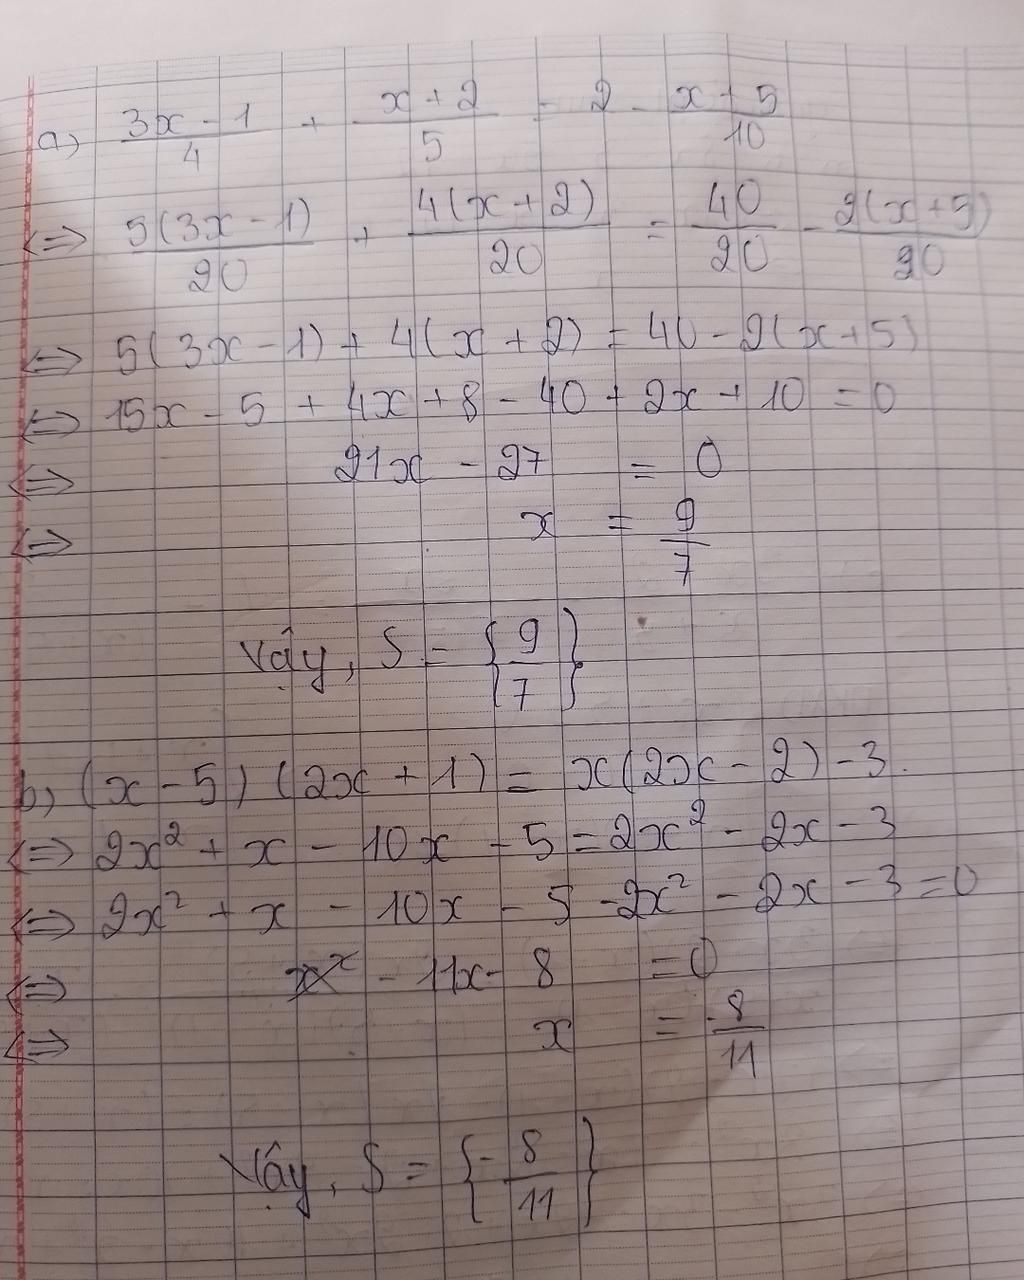 a) (3x - 1)/4 + (x + 2)/5 = 2 - (x + 5)/10
<=> 5(3x - 1)/20 + 4(x + 2)/20 = 40/20 - 2(x + 5)/20
<=> 5(3x - 1) + 4(x + 2) = 40 - 2(x + 5)
<=> 15x - 5 + 4x + 8 - 40 + 2x + 10 = 0
<=> 21x - 27 = 0
<=> x = 9/7
Vậy, S = {9/7}
b) (x - 5)(2x + 1) = x(2x - 2) - 3.
<=> 2x² + x - 10x - 5 = 2x² - 2x - 3
<=> 2x² + x - 10x - 5 - 2x² - 2x - 3 = 0
<=> - 11x - 8 = 0
<=> x = -8/11
Vậy, S = {-8/11}